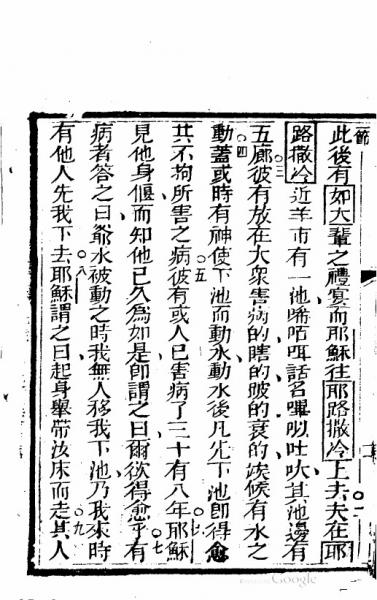 節
此後有如大輩之禮宴而耶穌往耶路撒冷上去夫在耶
路撒冷近羊市有一池唏咟咡話名嗶㕥吐吙其池邊有
五廊彼有放在大衆害病的瞎的跛的衰的俟候有水之
動蓋或時有神使下池而動水動水後凡先下池卽得愈
共不拘所害之病彼有或人已害病了三十有八年耶穌
見他身偃而知他已久爲如是卽謂之曰爾欲得愈乎有
病者答之曰爺水被動之時我無人移我下池乃我來時
有他人先我下去耶穌謂之曰起身舉帶汝床而走其人
○一
○三
○四
○五
○六
○七
○八
○九
Google